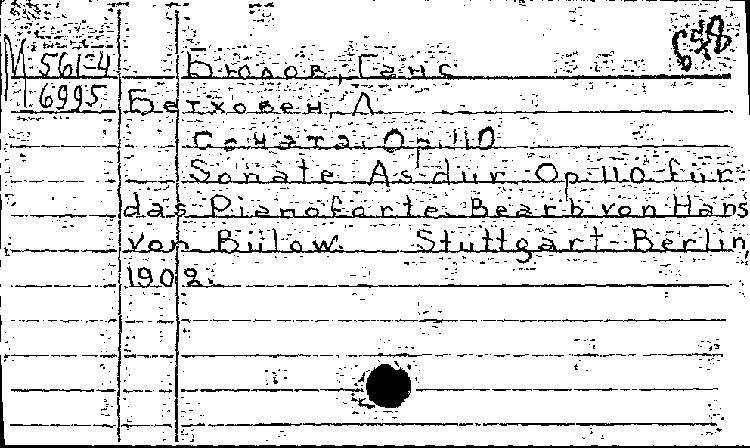 М 561-4 Бюлов, Ганс
16995 Бетховен, Л.
Соната. Op. 110
Sonate As-dur Op. 110 für
das Pianoforte. Bearb. von Hans
von Bülow. Stuttgart-Berlin,
1902.